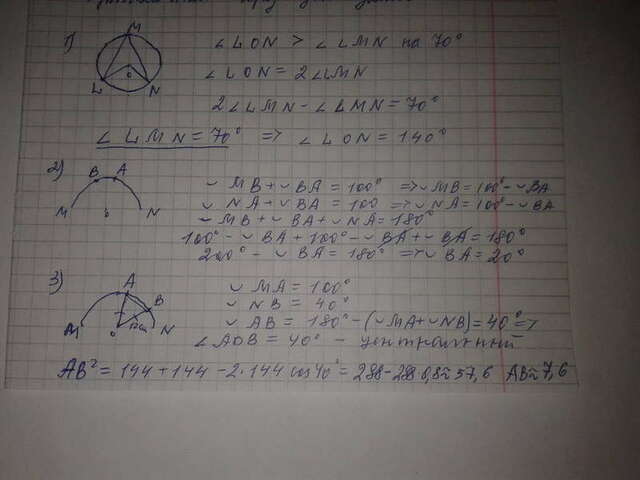 1) ∠LON > ∠LMN на 70°
∠LON = 2∠LMN
2∠LMN - ∠LMN = 70°
∠LMN = 70° => ∠LON = 140°
M
O
L N
2) ◡MB + ◡BA = 100° => ◡MB = 100° - ◡BA
◡NA + ◡BA = 100 => ◡NA = 100° - ◡BA
◡MB + ◡BA + ◡NA = 180°
100° - ◡BA + 100° - ◡BA + ◡BA = 180°
200° - ◡BA = 180° => ◡BA = 20°
B A
M O N
3) ◡MA = 100°
◡NB = 40°
◡AB = 180° - (◡MA + ◡NB) = 40° =>
∠AOB = 40° - центральный
A
B
M O N
AB² = 144 + 144 - 2·144 cos40° = 288 - 288·0,8 ≈ 57,6 AB ≈ 7,6